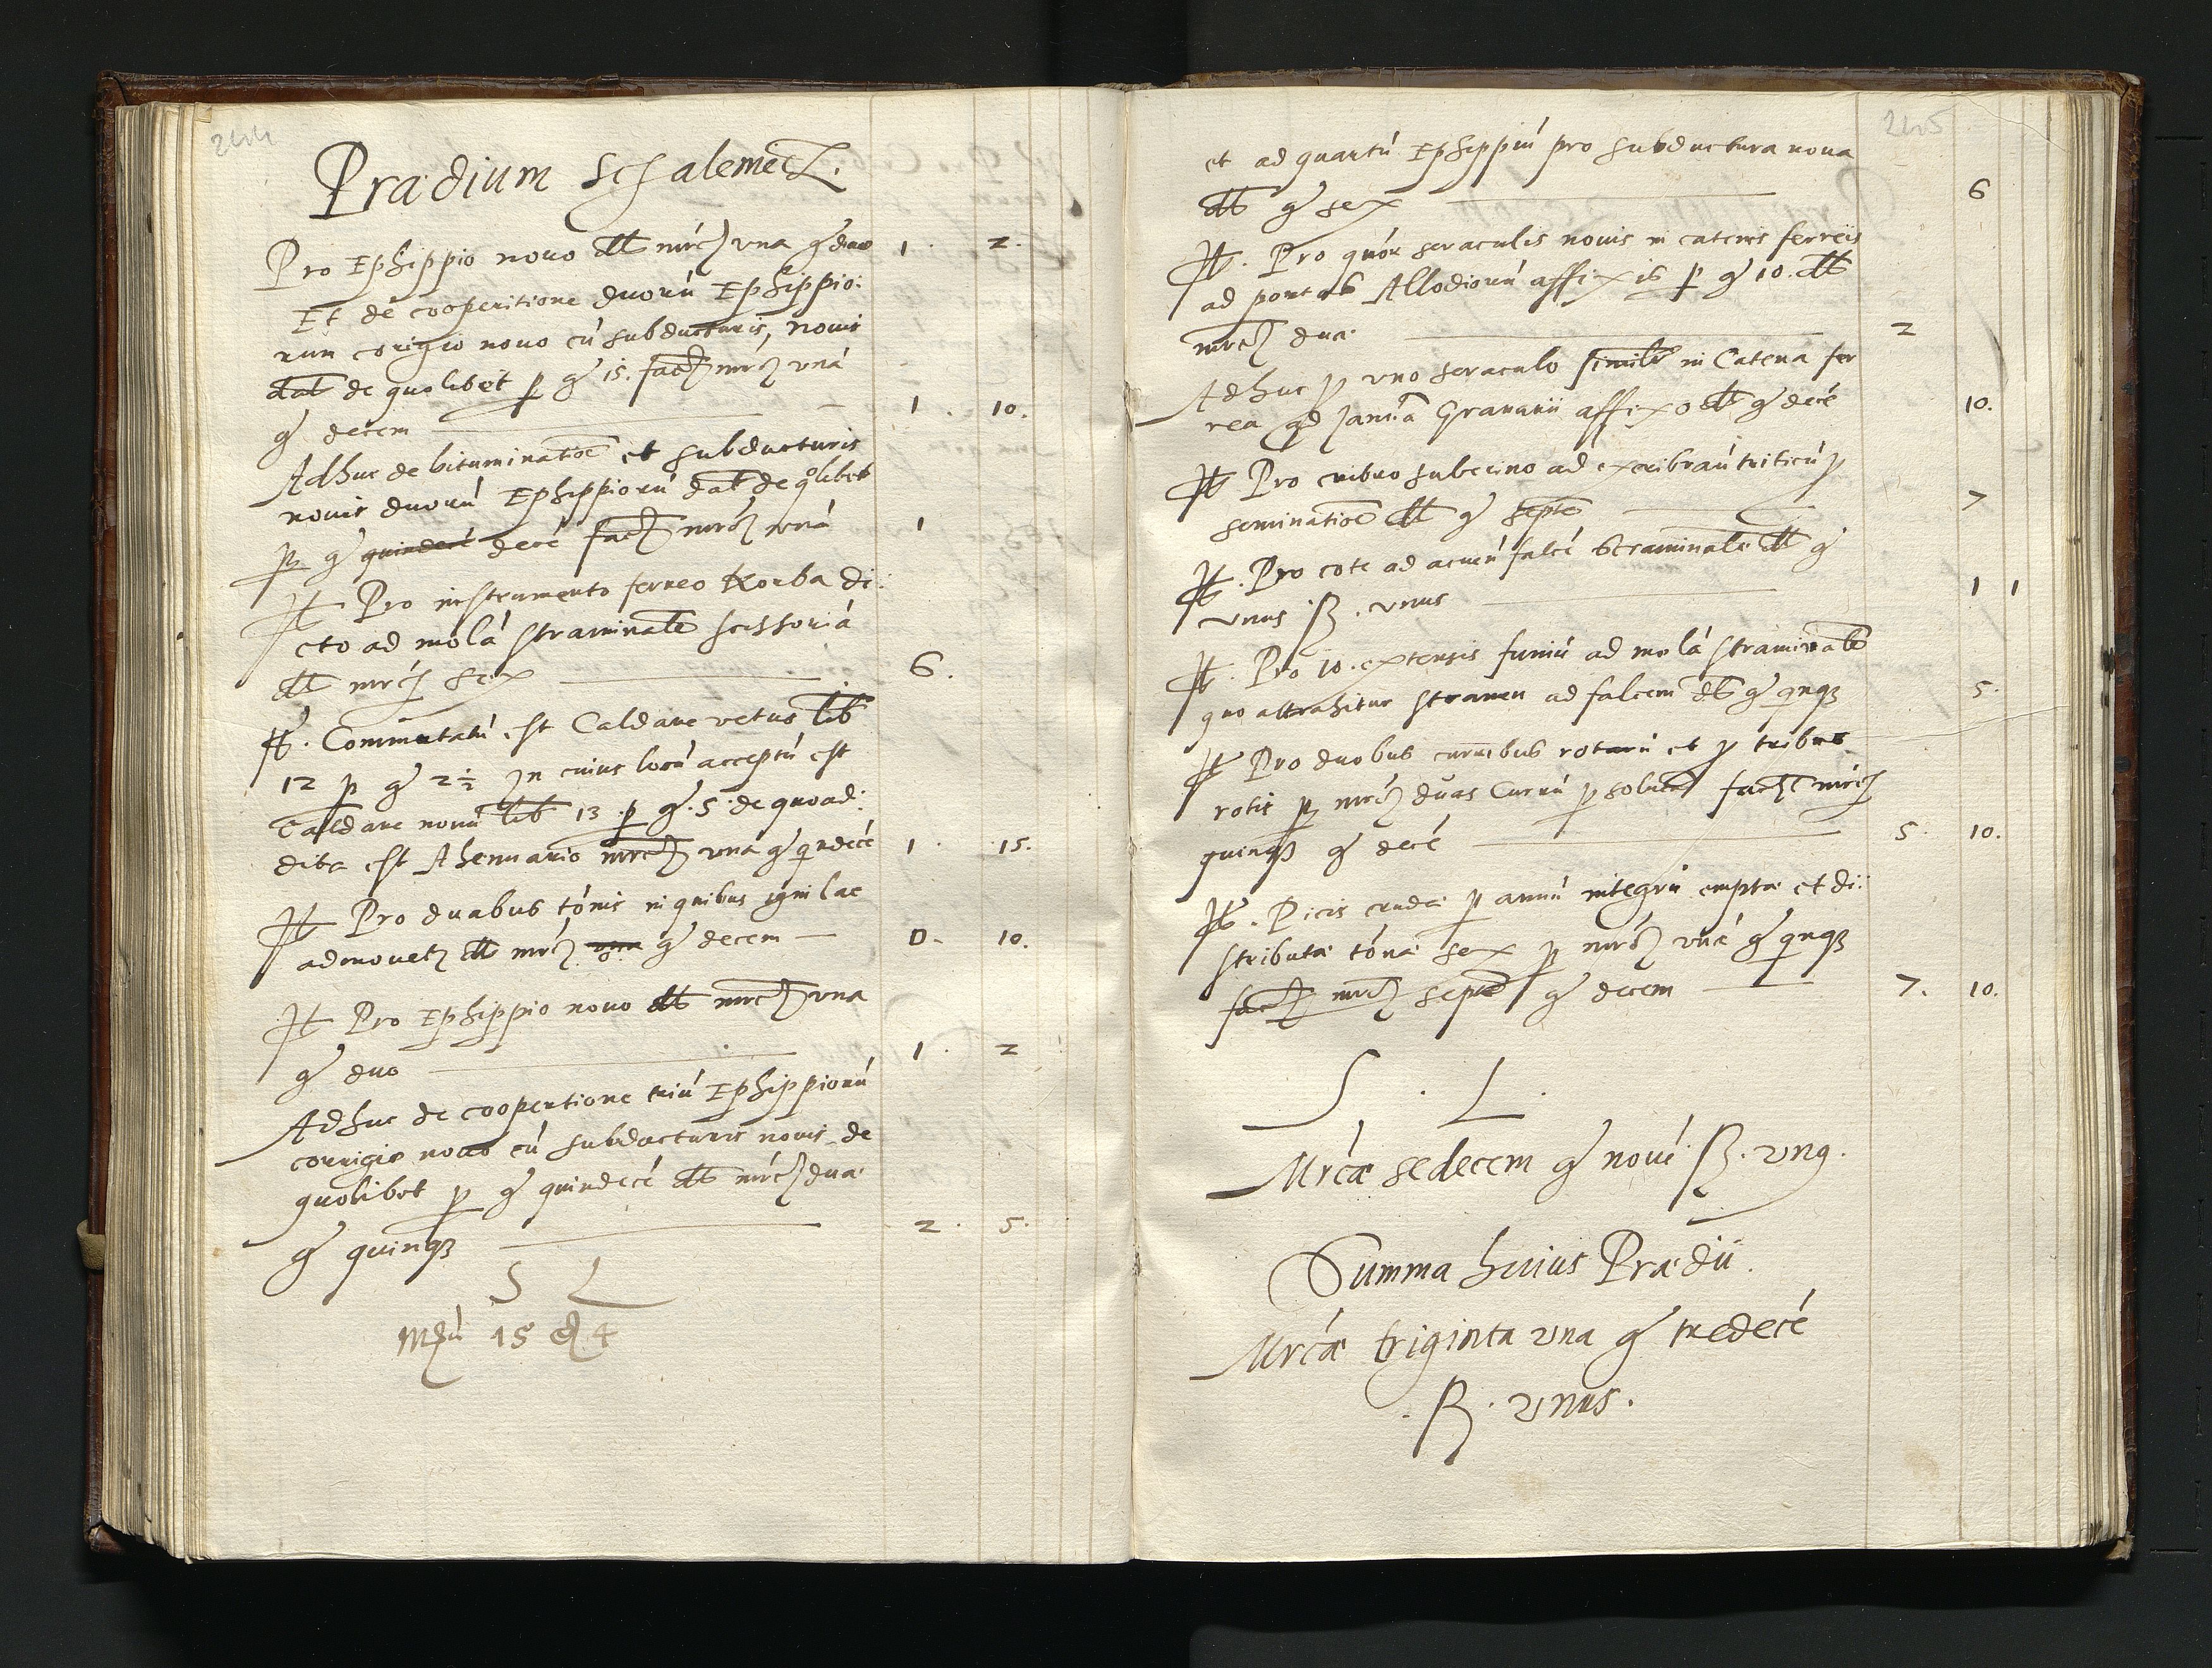 244
Prædium Schalemecz.
Pro Ephippio nouo dtt mrcȩ vna gͬ duo 1. 2.
Et de cooperitione duorū Ephippio:
rum corigio nouo cū subducturis, nouis
dat de quolibet p gͬ 15. facȩ mrcȩ vnā
gͬ decem 1. 10.
Adhuc de bituminatiōe et subducturis
nouis duorū Ephippiorū dat de q̊libet
p gͬ quindecē decē facȩ mrcȩ vnā 1
It Pro instrumento ferreo Korba di:
cto ad molā straminalē scissoriā
dtt mrcȩ sex 6.
It. Commutatū est Caldare vetus lib
12 p gͬ 2½ Jn cuius locū acceptū est
Caldare nouū lib 13 p gͬ. 5 de quo ad:
dita est Ahenuario mrcȩ vnā gͬ qndecē 1. 15.
It Pro duabus tōnis in quibus igni lac
admouetȩ dtt mrcȩ vna gͬ decem 0. 10.
It Pro Ephippio nouo dtt mrcȩ vna
gͬ duo 1. 2
Adhuc de coopertione triū Ephippiorū
corrigio nouo cū subducturis nouis de
quolibet p gͬ quindecē dtt mrcȩ duæ
gͬ quinqȝ 2. 5.
S L
15 4
245
et ad quartū Ephippiū pro subductura noua
dtt gͬ sex 6
It. Pro quōr seraculis nouis in catenis ferreis
ad portas Allodiorū affixis p gͬ 10. dtt
mrcȩ duæ 2
Adhuc p vno seraculo simili in Catena fer
rea ad Januā Granarii affixo dtt gͬ decē 10.
It Pro cribro subecino ad excribrandū triticū p
seminatiōe dtt gͬ septē 7
It. Pro cote ad acuendū falcē straminalē dtt gͬ
vnus ß. vnus 1 1
It. Pro 10. extensis funiū ad molā straminalē
quo attrahitur stramen ad falcem dtt gͬ qnqȝ 5.
It Pro duobus curribus rotarū et p tribus
rotis p mrcȩ duas Currū p soluta facȩ mrcȩ
quinqȝ gͬ decē 5. 10.
It. Picis crudæ p annū integrū emptæ et di:
stributæ tōnæ sex p mrcȩ vnā gͬ qnqȝ
facȩ mrcȩ septē gͬ decem 7. 10.
S. L.
Mrcæ sedecem gͬ nouē ß. vnꝰ.
Summa huius Prædii.
Mrcæ triginta vna gͬ tredecē
. ß. vnus.